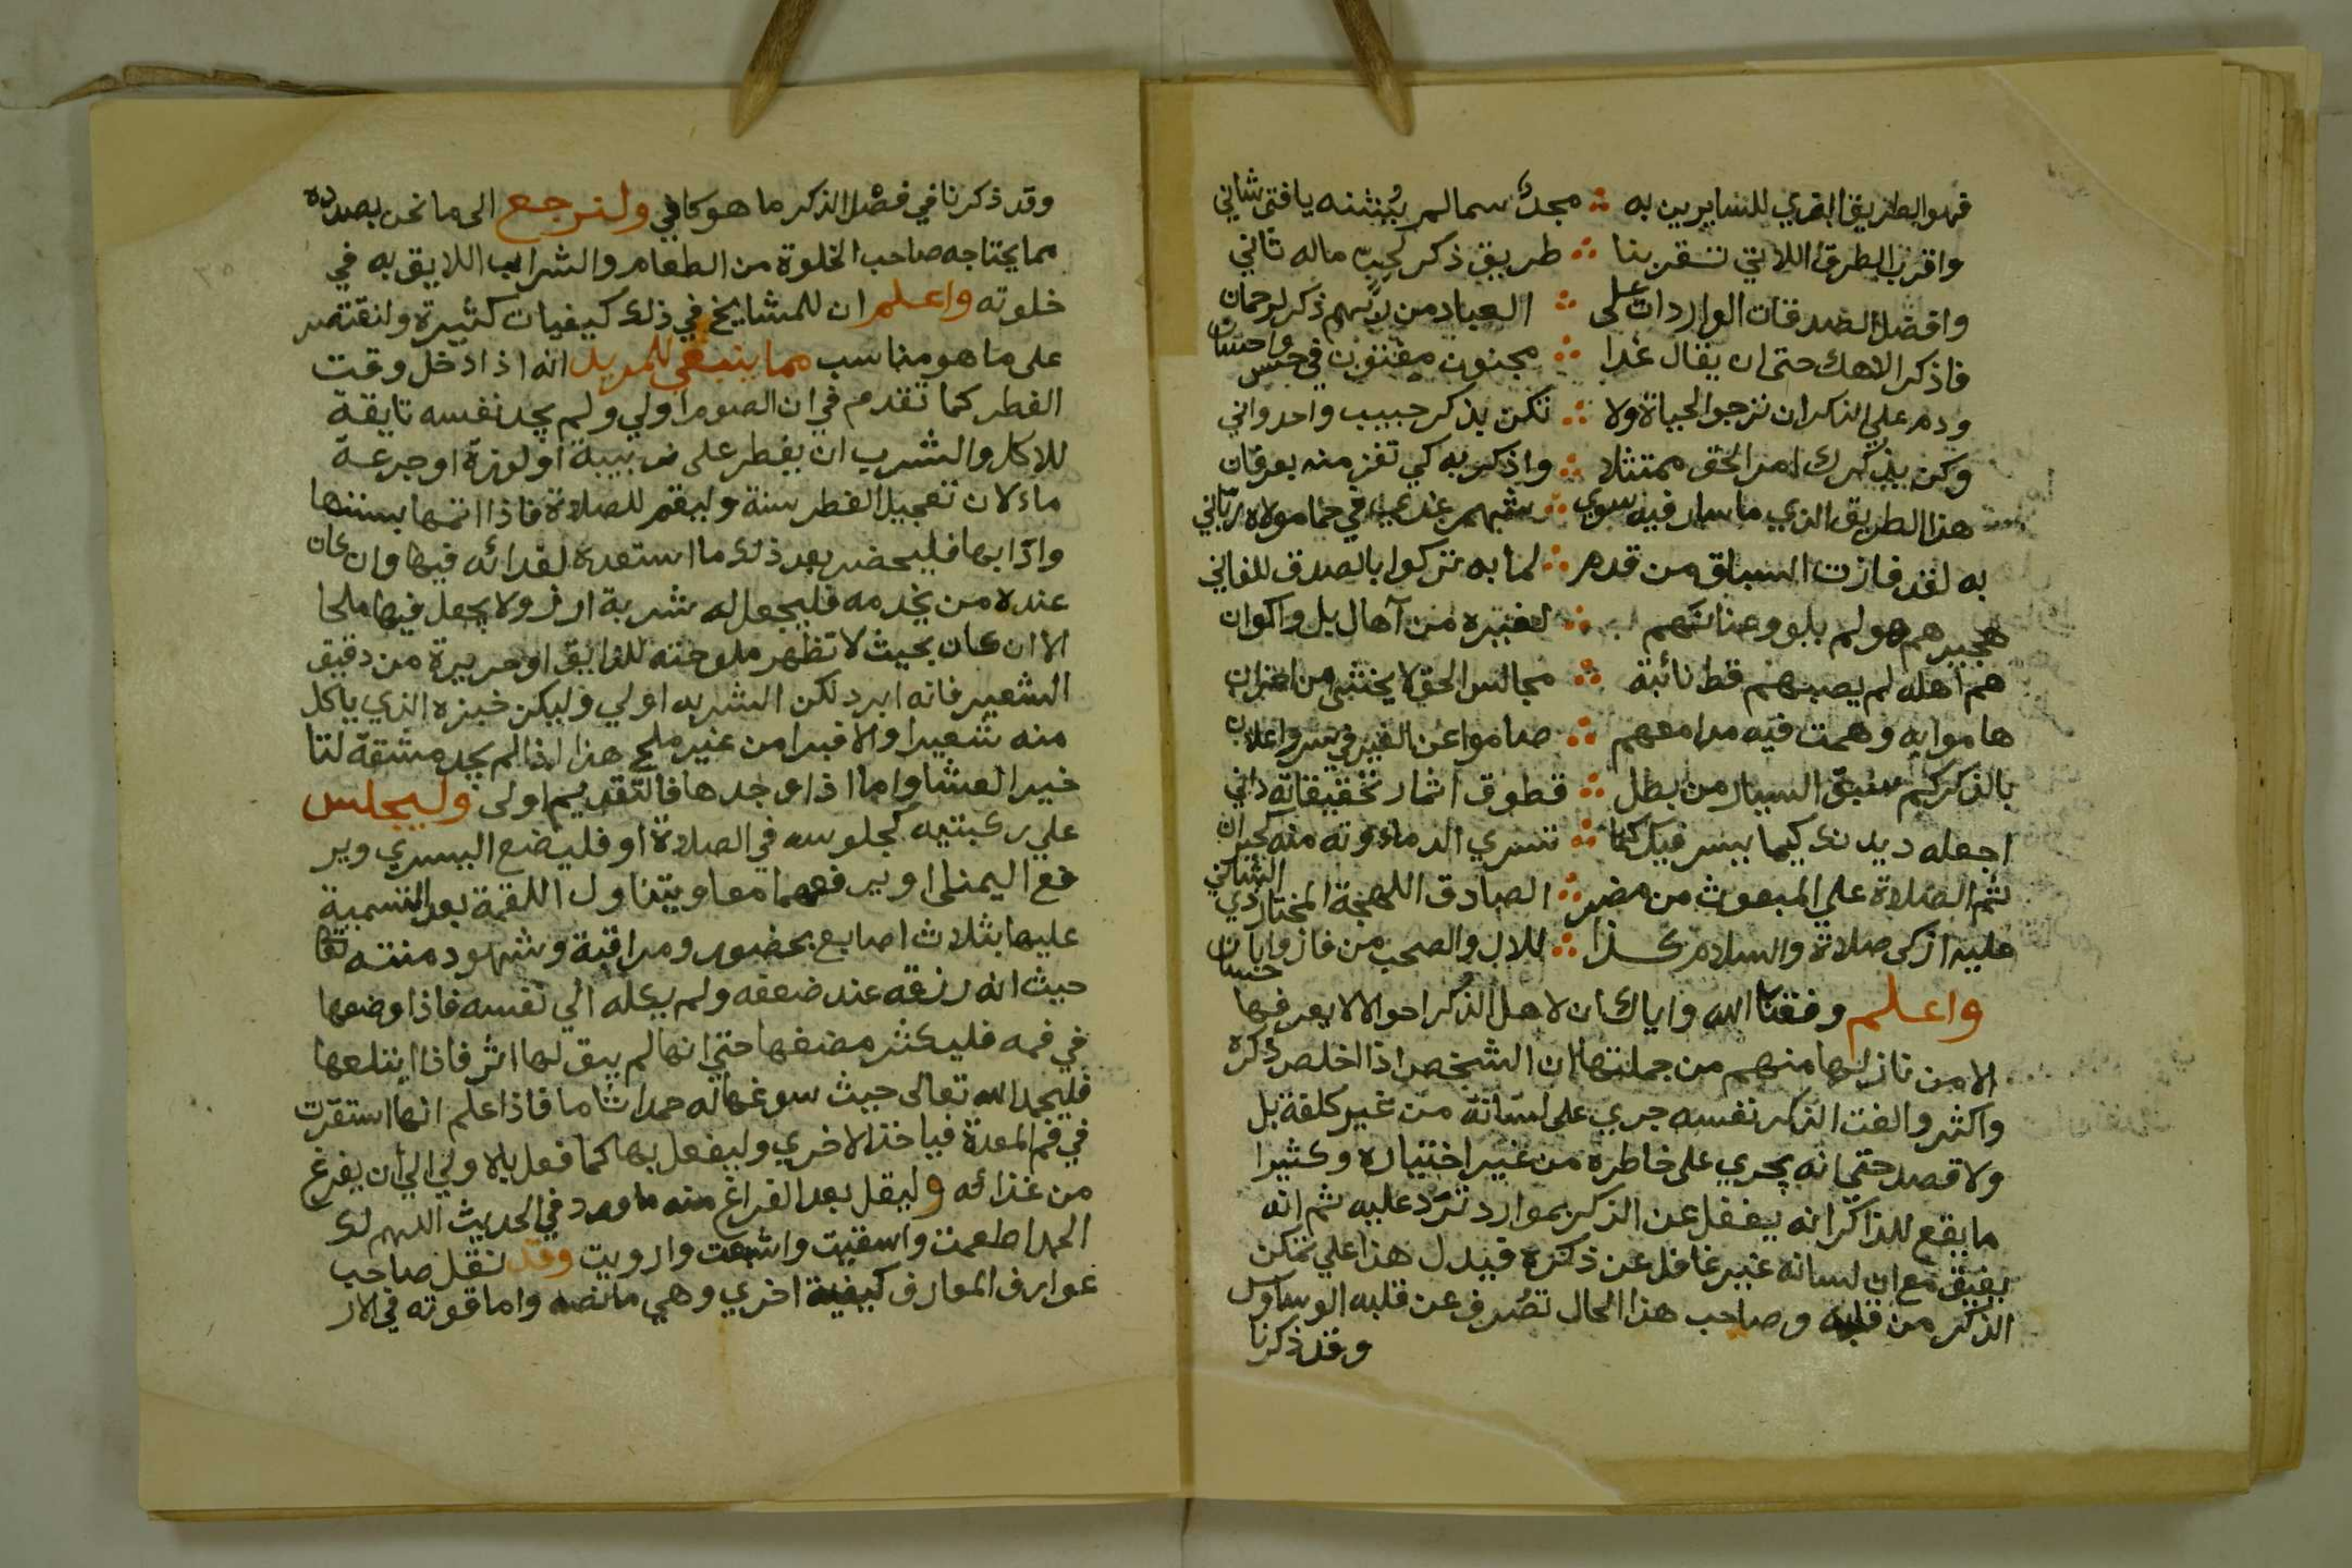 فهو الطريق القوي للسايرين به ∴ مجدٌ سما لم يُثنه يا فتى شاني
واقرب الطرق اللاتي تقربنا ∴ طريق ذكر لحبّ ماله ثاني
وافضل الصدقات الواردات على ∴ العباد من لربهم ذكر لرحمان
فاذكر الاهك حتى ان يقال غدا ∴ مجنون مفتون في حسن واحسان
ودم علي الذكر ان ترجوا الحياة ولا ∴ تكن بذكر حبيب واحد واني
وكن بذكرك امر الحق ممتثلا ∴ واذكر به كي تفز منه بعرفان
هذا الطريق الذي ما سار فيه سوي ∴ شهم غدي في حما مولاه رباني
به لقد فازت السباق من قدم ∴ لما به تركوا بالصدق للفاني
هجيرهم هو لم يلووعنانهم ∴ لغيره من آهال بل واكوان
هم اهله لم يصبهم قط نائبة ∴ مجالس الحق لا يخشي من احزان
هاموا به وهمت فيه مدامعهم ∴ صاموا عن الغير في سر واعلان
بالذكر كم سبق السيار من بطل ∴ قطوف اثمار تحقيقاته داني
اجعله ديدنك كيما يسر فيك كما ∴ تسري الدماء وته منه كحيران
ثم الصلاة علي المبعوث من مضر ∴ الصادق اللهجة المختار ذي الشان
عليه ازكى صلاة والسلام كذا ∴ للال والصحب من فازوا باحسان
واعلم وفقنا الله واياك ان لاهل الذكر احوالا لا يعرفها
الا من نازلها منهم من جملتها ان الشخص اذا اخلص ذكره
واكثر والفت الذكر نفسه جري على لسانه من غير كلفة بل
ولا قصد حتى انه يجري على خاطره من غير اختياره وكثيرا
ما يقع للذاكر انه يغفل عن الذكر بموارد ترد عليه ثم انه
يفيق مع ان لسانه غير غافل عن ذكره فيدل هذا علي تمكن
الذكر من قلبه وصاحب هذا الحال تصُرف عن قلبه الوساوس
وقد ذكرنا
وقد ذكرنا في فضل الذكر ما هو كافي ولنرجع الى ما نحن بصدده
مما يحتاجه صاحب الخلوة من الطعام والشراب اللايق به في
خلوته واعلم ان للمشايخ في ذلك كيفيات كثيرة ولنقتصر
على ما هو مناسب مما ينبغي للمريد انه اذا دخل وقت
الفطر كما تقدم في ان الصوم اولي ولم يجد نفسه تايقة
للاكل والشرب ان يفطر على زبيبة او لوزة او جرعة
ماء لان تعجيل الفطر سنة وليقم للصلاة فاذا اتمها بسننها
وادابها فليحضر بعد ذلك ما استعده لغدائه فيها وان كان
عنده من يخدمه فليجعل له شربة ارز ولا يجعل فيها ملحا
الا ان كان بحيث لا تظهر ملوحته للذايق او حريرة من دقيق
الشعير فانه ابرد لكن الشربه اولي وليكن خبزه الذي ياكل
منه شعيرا والا فبرا من غير ملح هذا اذا لم يجد مشقة لتا
خير العشا واما اذا وجدها فالتقديم اولى وليجلس
علي ركبتيه كجلوسه في الصلاة او فليضع اليسري وير
فع اليمنى او يرفعهما معا ويتناول اللقمة بعد التسمية
عليها بثلاث اصابع بحضور ومراقبة وشهود منته تعا
حيث انه رزقه عند ضعفه ولم يكله الي نفسه فاذا وضعها
في فمه فليكثر مضغها حتي انها لم يبق لها اثر فاذا ابتلعها
فليحمد الله تعالى حيث سوغها له حمدا تاما فاذا علم انها استقرت
في فم المعدة فياخذ الاخري وليفعل بها كما فعل بالاولي الي ان يفرغ
من غذائه وليقل بعد الفراغ منه ما ورد في الحديث اللهم لك
الحمد اطعمت واسقيت واشبعت وارويت وقد نقل صاحب
عوارف المعارف كيفية اخري وهي ما نصه واما قوته في الار